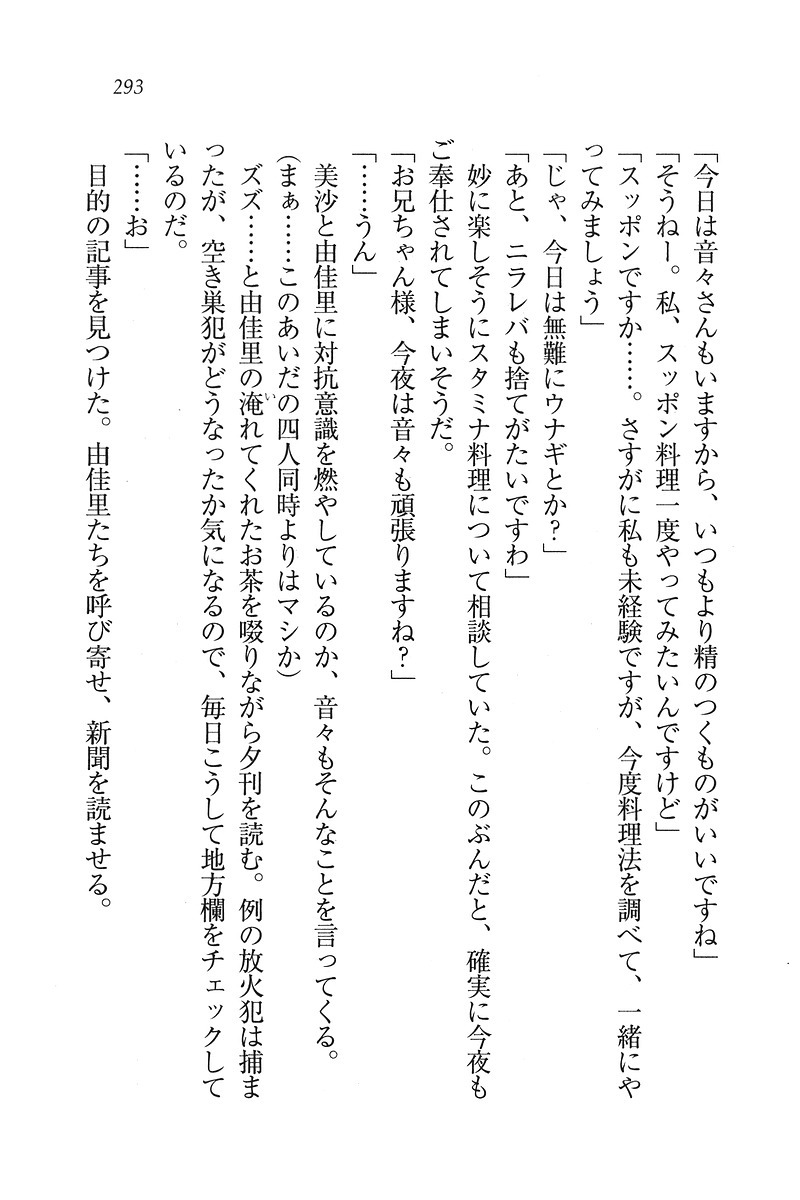 293
「今日は音々さんもいますから、いつもより精のつくものがいいですね」
「そうねー。私、スッポン料理一度やってみたいんですけど」
「スッポンですか……。さすがに私も未経験ですが、今度料理法を調べて、一緒にや
ってみましょう」
「じゃ、今日は無難にウナギとか？」
「あと、ニラレバも捨てがたいですわ」
妙に楽しそうにスタミナ料理について相談していた。このぶんだと、確実に今夜も
ご奉仕されてしまいそうだ。
「お兄ちゃん様、今夜は音々も頑張りますね？」
「……うん」
美沙と由佳里に対抗意識を燃やしているのか、音々もそんなことを言ってくる。
（まぁ……このあいだの四人同時よりはマシか）
ズズ……と由佳里の淹れてくれたお茶を啜りながら夕刊を読む。例の放火犯は捕ま
い
ったが、空き巣犯がどうなったか気になるので、毎日こうして地方欄をチェックして
いるのだ。
「……お」
目的の記事を見つけた。由佳里たちを呼び寄せ、新聞を読ませる。